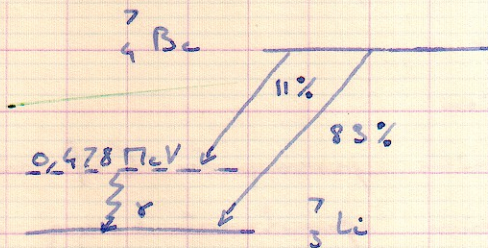 ⁷₄Be
11%
83%
0,478 MeV
γ
⁷₃Li